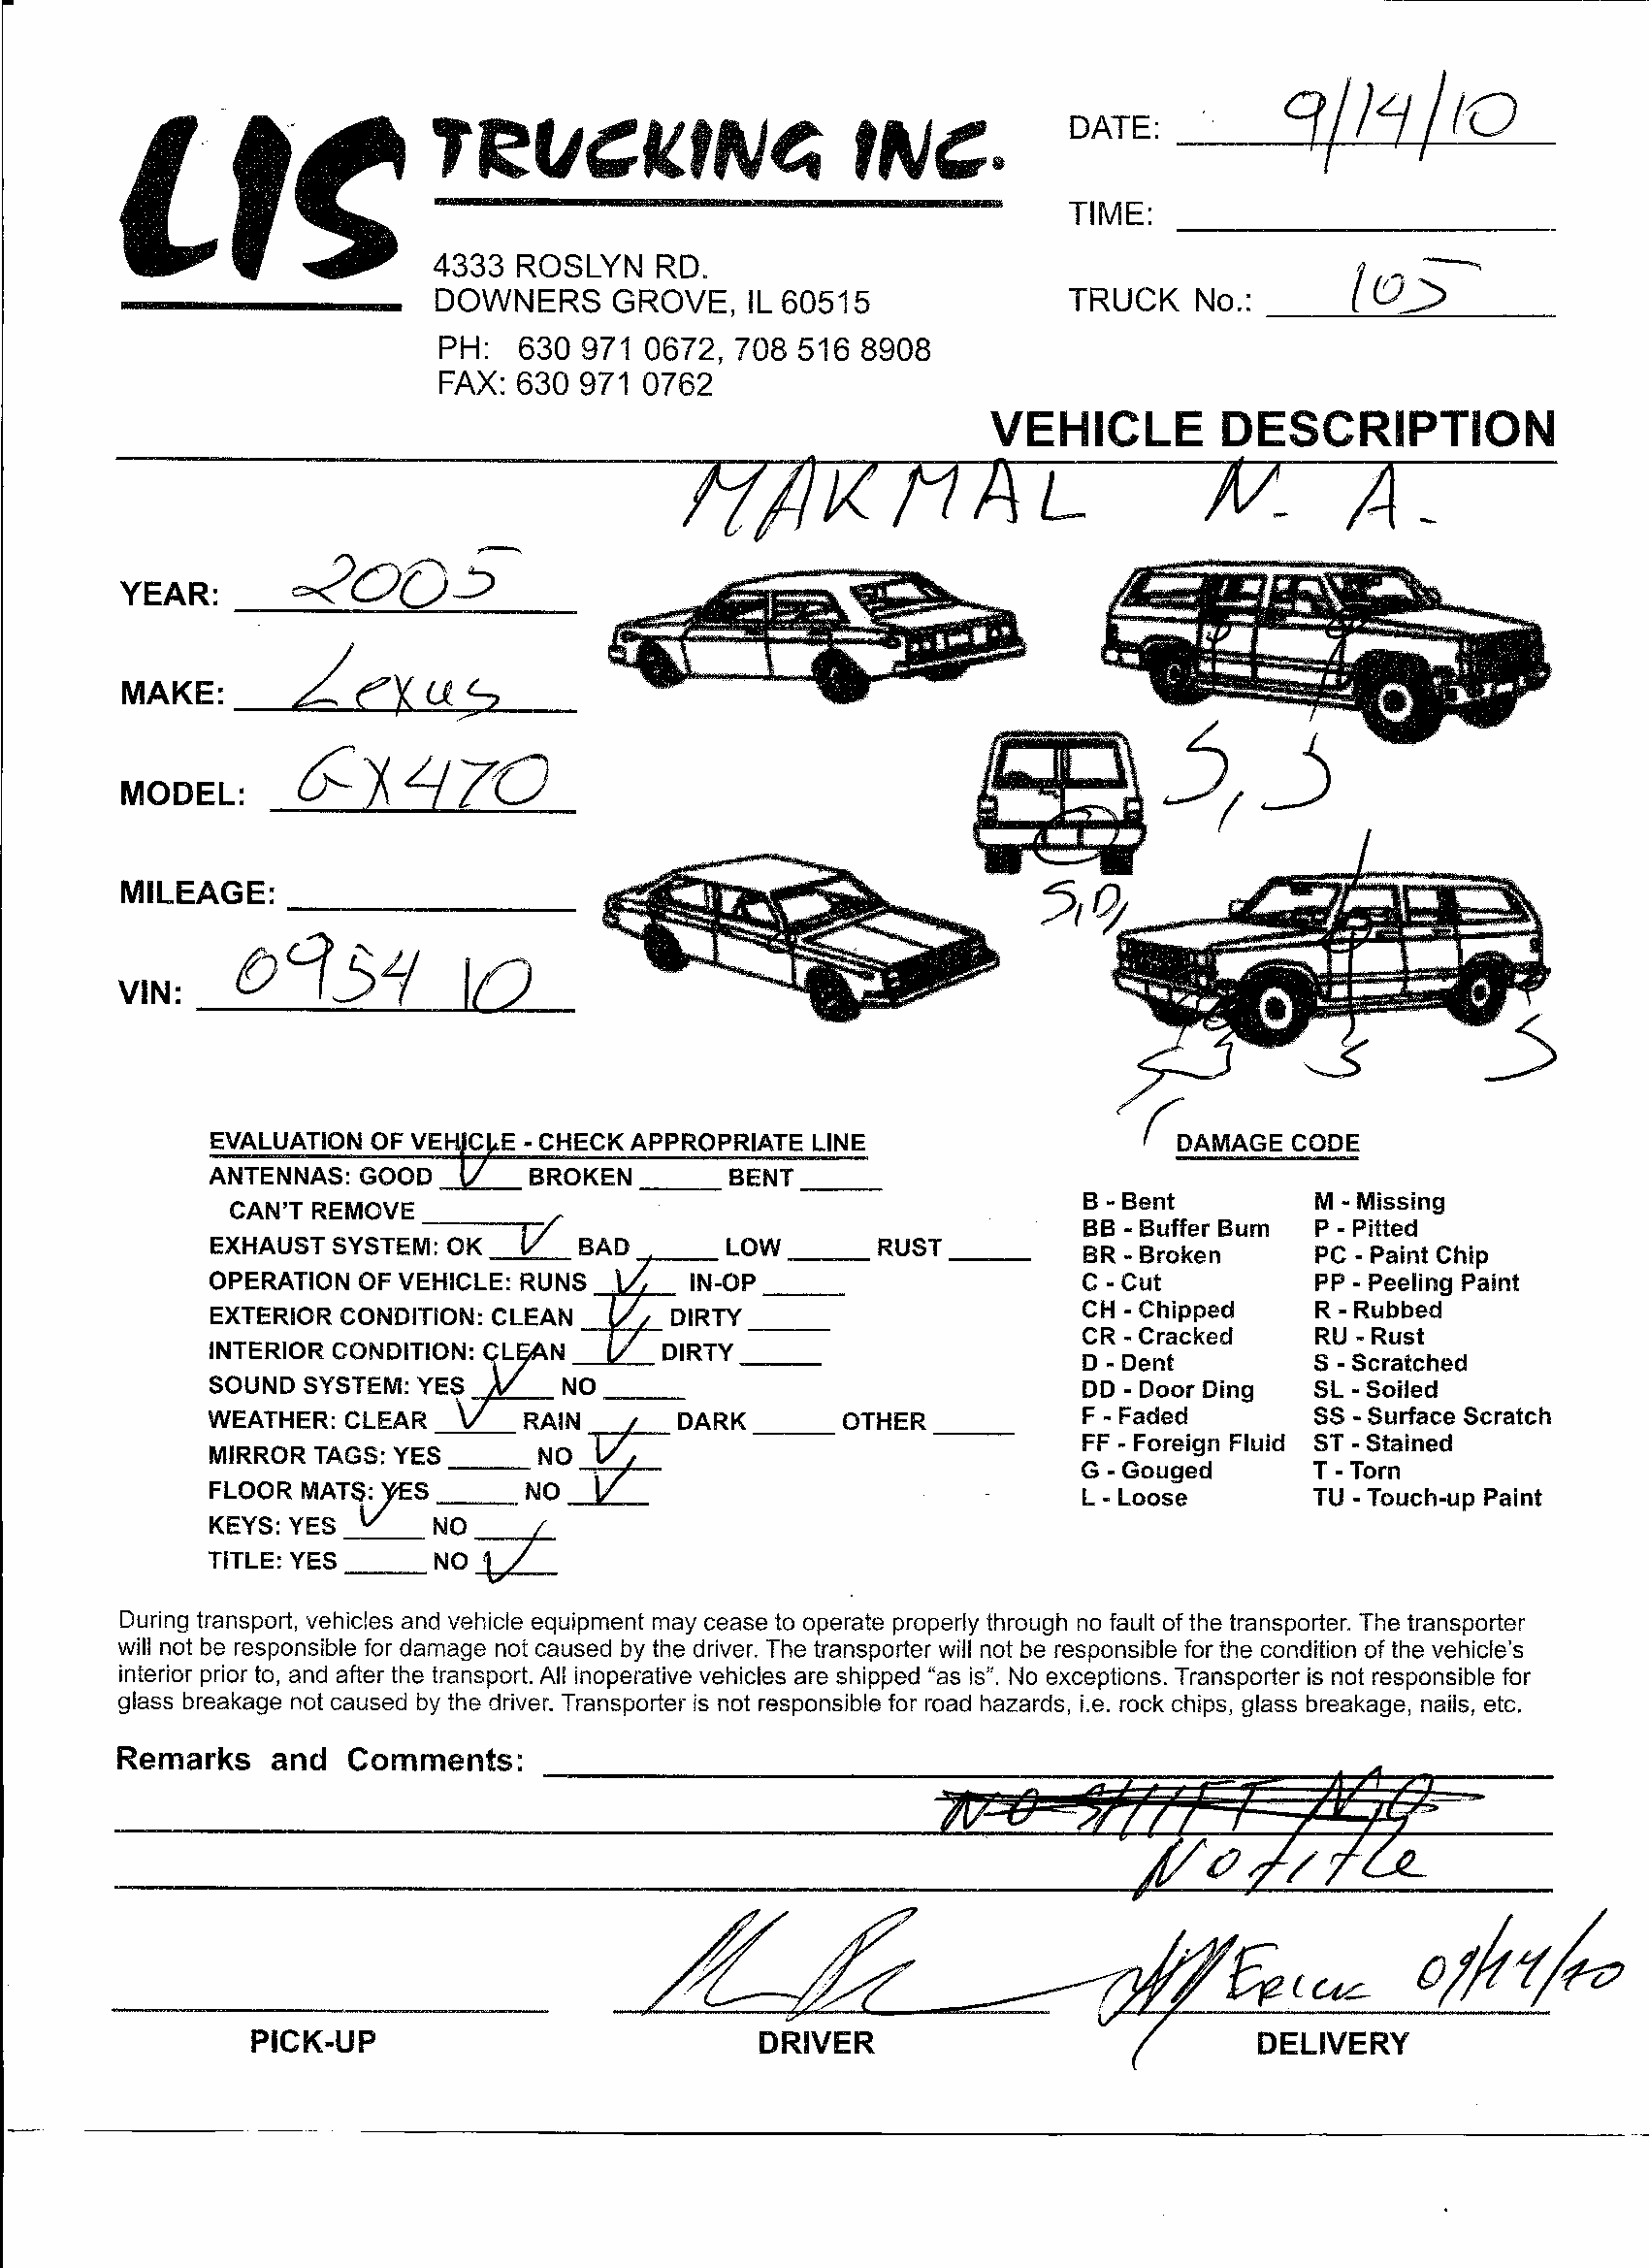 LIS TRUCKING INC.
DATE: 9/14/10
TIME:
4333 ROSLYN RD.
DOWNERS GROVE, IL 60515
TRUCK No.: 105
PH: 630 971 0672, 708 516 8908
FAX: 630 971 0762
VEHICLE DESCRIPTION
MAKMAL N. A.
YEAR: 2005
MAKE: Lexus
MODEL: GX470
S, S
MILEAGE:
S,D,
VIN: 0954 10
S S S
EVALUATION OF VEHICLE - CHECK APPROPRIATE LINE
ANTENNAS: GOOD ✓ BROKEN BENT
CAN'T REMOVE
EXHAUST SYSTEM: OK ✓ BAD LOW RUST
OPERATION OF VEHICLE: RUNS ✓ IN-OP
EXTERIOR CONDITION: CLEAN ✓ DIRTY
INTERIOR CONDITION: CLEAN ✓ DIRTY
SOUND SYSTEM: YES ✓ NO
WEATHER: CLEAR ✓ RAIN DARK OTHER
MIRROR TAGS: YES NO ✓
FLOOR MATS: YES NO ✓
KEYS: YES ✓ NO
TITLE: YES NO ✓
DAMAGE CODE
B - Bent M - Missing
BB - Buffer Bum P - Pitted
BR - Broken PC - Paint Chip
C - Cut PP - Peeling Paint
CH - Chipped R - Rubbed
CR - Cracked RU - Rust
D - Dent S - Scratched
DD - Door Ding SL - Soiled
F - Faded SS - Surface Scratch
FF - Foreign Fluid ST - Stained
G - Gouged T - Torn
L - Loose TU - Touch-up Paint
During transport, vehicles and vehicle equipment may cease to operate properly through no fault of the transporter. The transporter
will not be responsible for damage not caused by the driver. The transporter will not be responsible for the condition of the vehicle's
interior prior to, and after the transport. All inoperative vehicles are shipped "as is". No exceptions. Transporter is not responsible for
glass breakage not caused by the driver. Transporter is not responsible for road hazards, i.e. rock chips, glass breakage, nails, etc.
Remarks and Comments:
NO SHIFT
No title
Erick 09/14/10
PICK-UP DRIVER DELIVERY